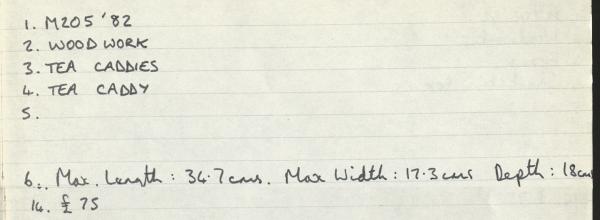 1. M205 '82
2. WOODWORK
3. TEA CADDIES
4. TEA CADDY
5.
6. Max. Length : 34.7cms. Max Width : 17.3cms Depth : 18cm
14. £ 75